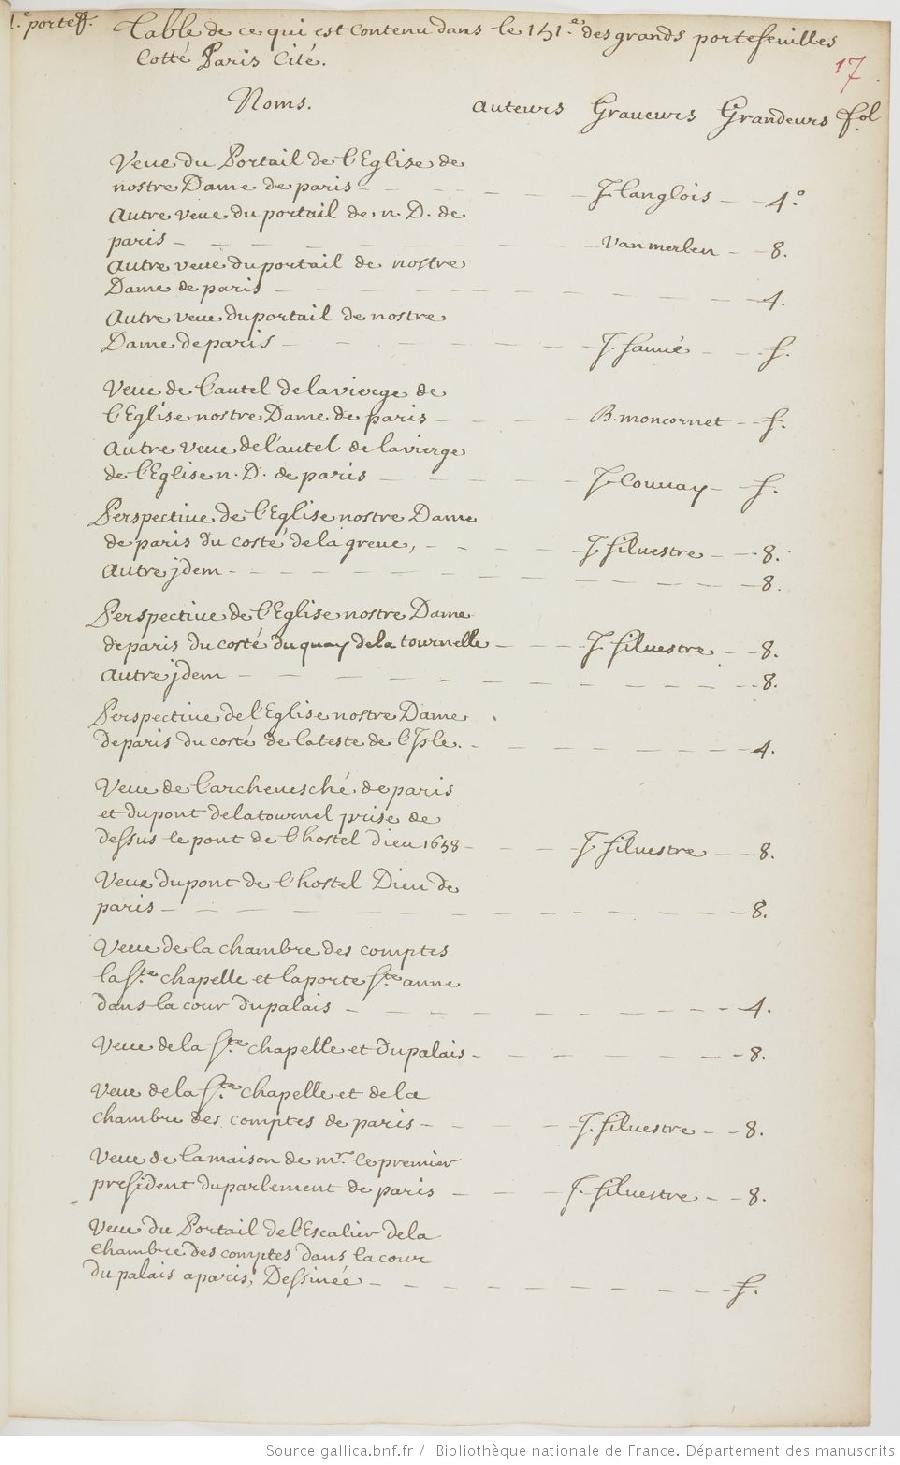 1.e portef. Table de ce qui est contenu dans le 151.e des grands portefeuilles
Cotté Paris Cité.
17
Noms. auteurs Graveurs Grandeurs fol
Veue du Portail de l'Eglise de
nostre Dame de paris - - - - - J. langlois - - 4.o
Autre veue du portail de n. D. de
paris - - - - - Van merlen - - 8.
Autre veue du portail de nostre
Dame de paris - - - - - 4.
Autre veue du portail de nostre
Dame de paris - - - - - - f.
Veue de l'autel de la vierge de
l'Eglise nostre Dame de paris - - - B. moncornet - - f.
Autre veue de l'autel de la vierge
de l'Eglise n. D. de paris - - - J. Couuay - f.
Perspective de l'Eglise nostre Dame
de paris du costé de la greue, - - - J. silvestre - - 8.
Autre jdem - - - - - 8.
Perspective de l'Eglise nostre Dame
de paris du costé du quay de la tournelle - - - J. silvestre - - 8.
autre jdem - - - - - 8.
Perspective de l'Eglise nostre Dame
de paris du costé de la teste de l'Isle. - - - - 4.
Veue de l'archeuesché de paris
et du pont de la tournel prise de
dessus le pont de l'hostel dieu 1658 - - - J. silvestre - - 8.
Veue du pont de l'hostel Dieu de
paris - - - - - 8.
Veue de la chambre des comptes
la ste chapelle et la porte ste anne
dans la cour du palais - - - - - 4.
Veue de la ste chapelle et du palais - - - - - 8.
Veue de la ste chapelle et de la
chambre des comptes de paris - - - J. silvestre - - 8.
Veue de la maison de mr. le premier
president du parlement de paris - - - J. silvestre - - 8.
Veue du Portail de l'Escalier de la
chambre des comptes dans la cour
du palais a paris, Dessinée - - - - - f.
Source gallica.bnf.fr / Bibliothèque nationale de France. Département des manuscrits